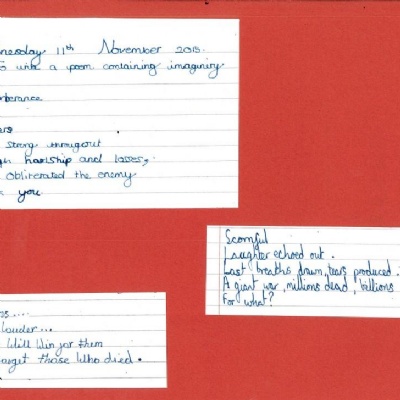 nesday 11th November 2015.
write a poem containing imaginery
berance
ers
strong throughout
hardship and losses,
Obliterated the enemy
you
Scornful
Laughter echoed out.
Last breaths drawn, tears produced.
A giant war, millions dead, billions
For what?
louder...
Will Win for them
forget those Who died.